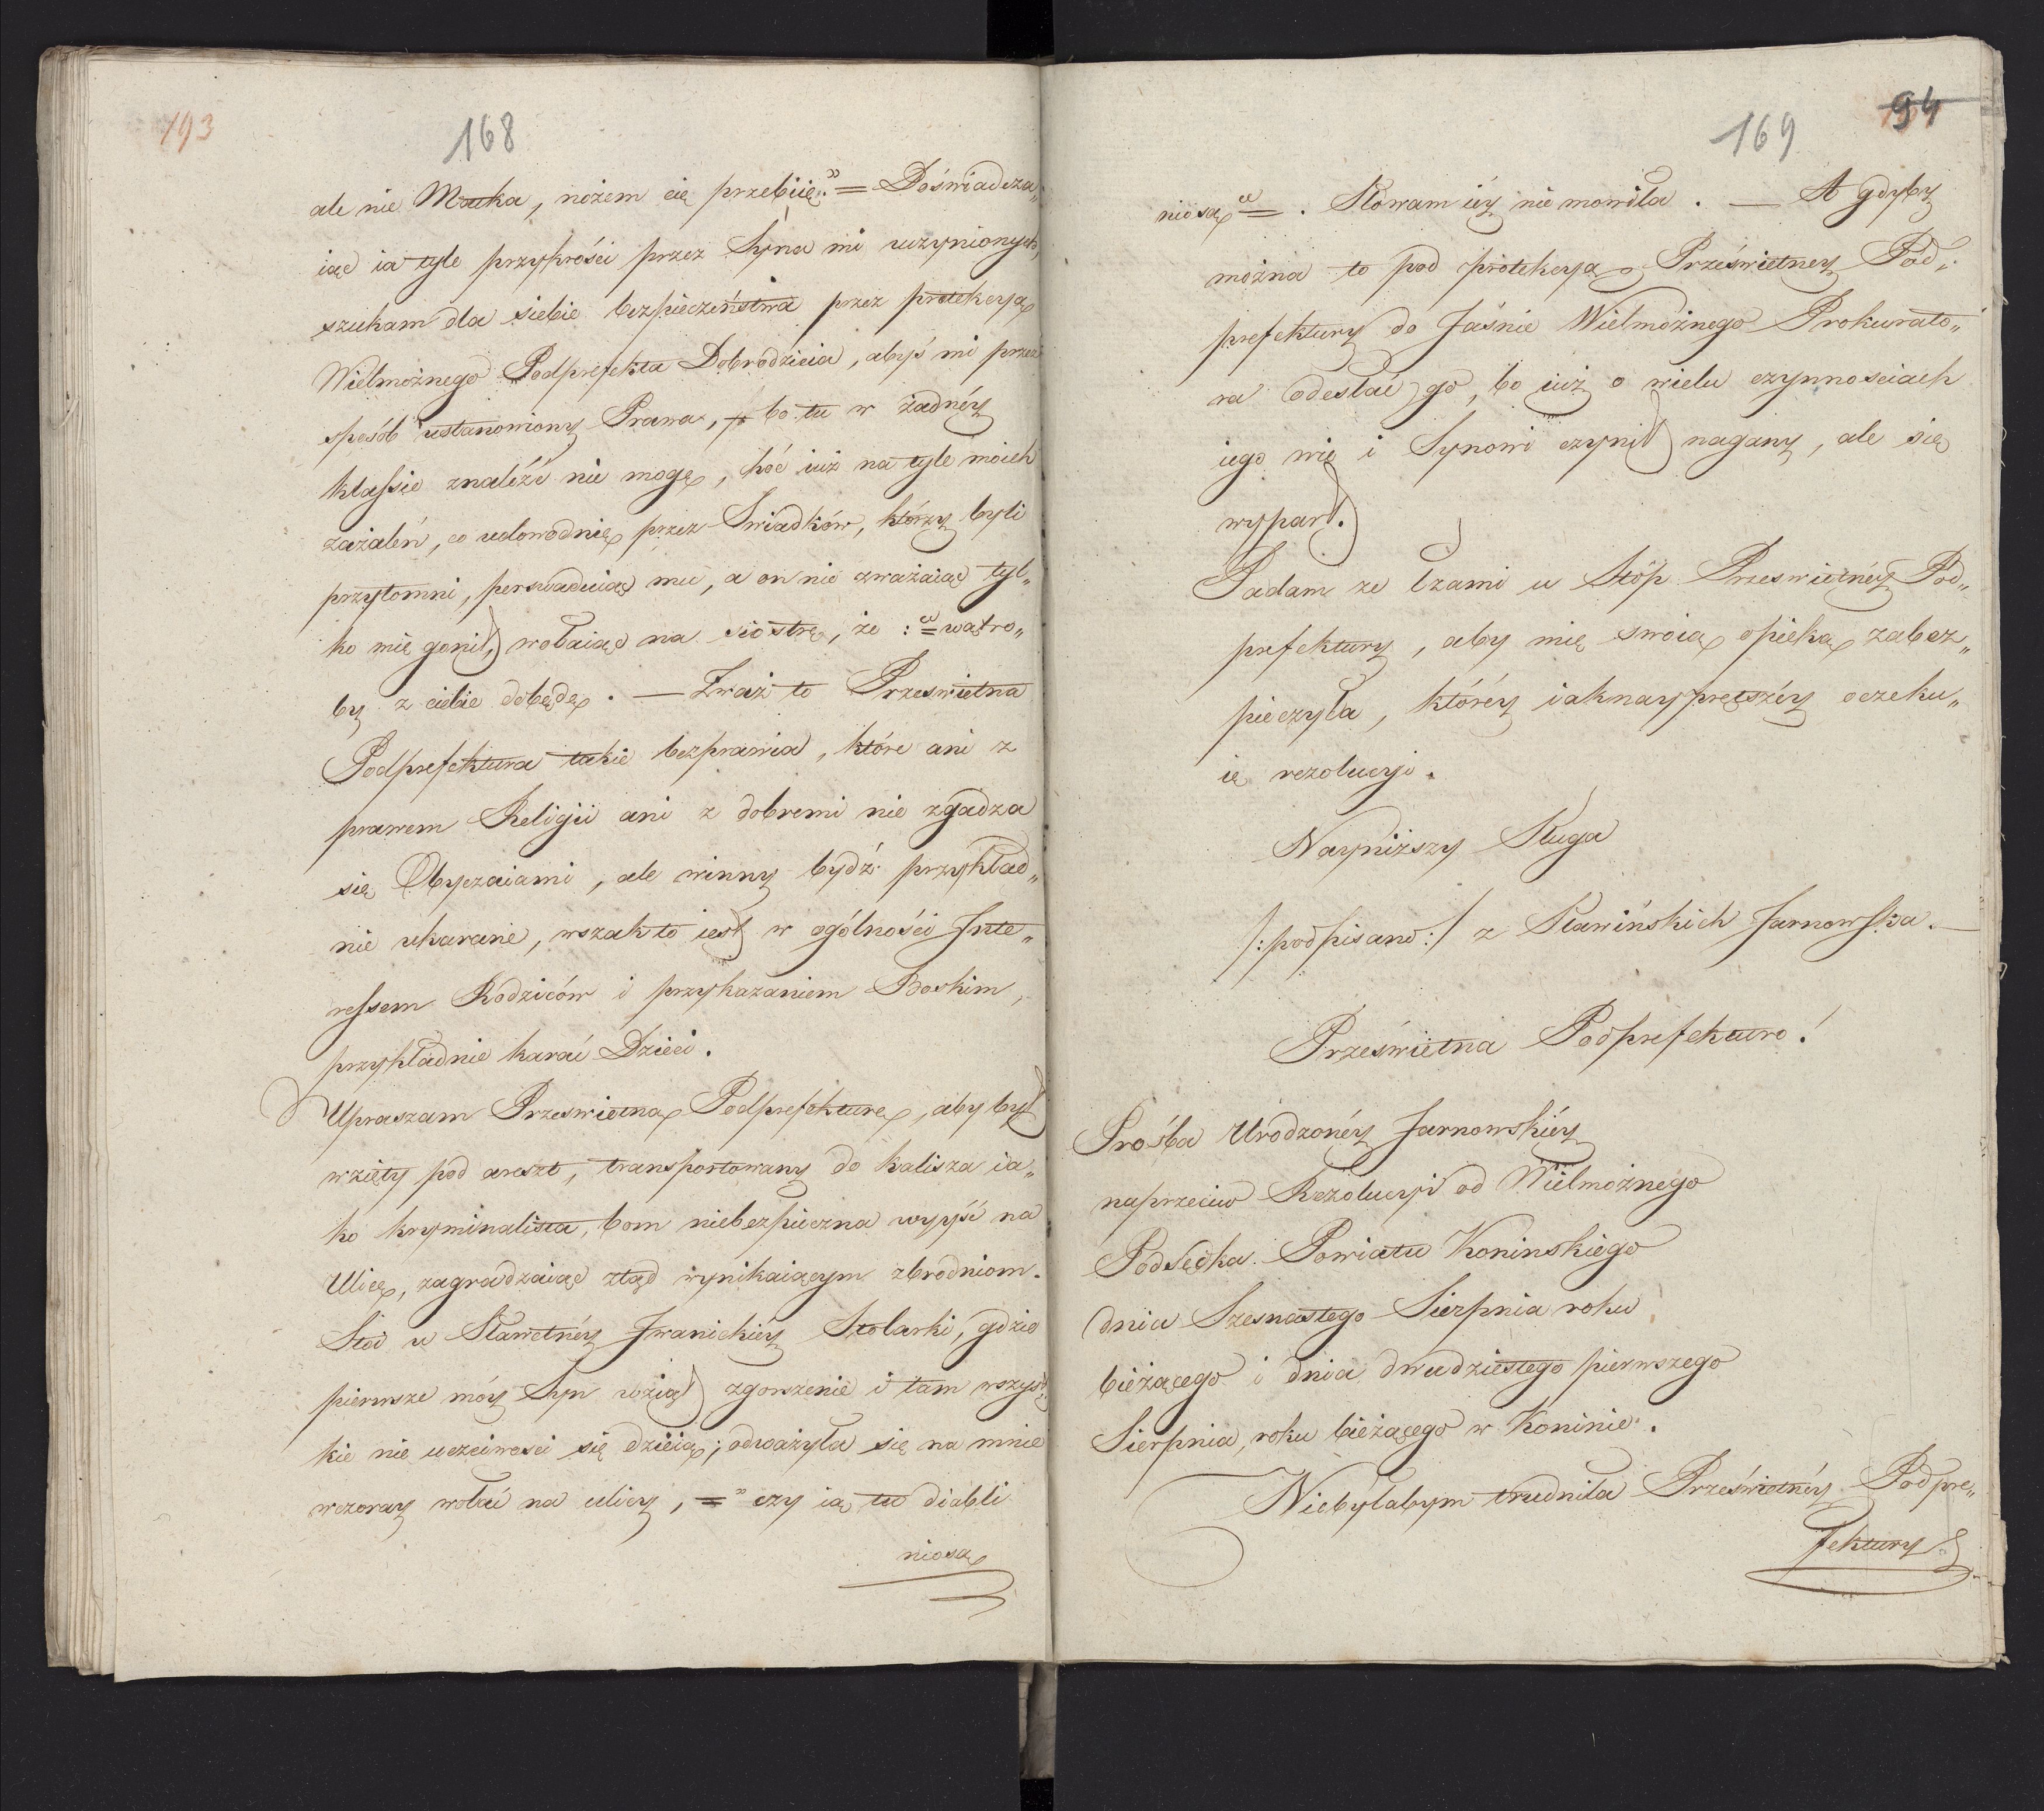 193
168
ale nie Matka, nożem cię przebiię." = Doświadcza„
iąc ia tyle przykrości przez Syna mi uczynionych,
szukam dla siebie bezpieczeństwa przez protekcyą
Wielmożnego Podprefekta Dobrodzieia, abyś mi przez
sposób ustanowiony Prawa, bo tu w żadnéy
klassie znaléźć nie mogę, hóć iuż na tyle moich
zażaleń, co udowodnię przez Swiadków, którzy byli
przytomni, perswaduiąc mu, a on nie zważaiąc tyl„
ko mię gonił, wołaiąc na siostrę, że : "= wątro„
by z ciebie dobędę. — Zważ to Przeswietna
Podprefektura takie bezprawia, które ani z
prawem Religii ani z dobremi nie zgadza
się Obyczaiami, ale winny bydź przykład„
nie ukarane, wszak to iest w ogólności Inte„
ressem Rodziców i przykazaniem Boskim,
przykładnie karać Dzieci.
Upraszam Przeswietną Podprefekturę, aby był
wzięty pod areszt, transportowany do Kalisza ia„
ko kryminalista, bom niebezpieczna wyyść na
Ulicę, zagradzaiąc ztąd wynikaiącym zbrodniom.
Stoi u Sławetnéy Iwanickiéy Stolarki, gdzie
pierwsze móy Syn wziął zgorszenie i tam wszyst„
kie nie uczciwosci się dzieią; odważyła się na mnie
wczoray wołać na ulicy, =" czy ią tu diabli
niosą
94
169
niosą "= . Słowam iéy nie mowiła. — A gdyby
można to pod protekcyą Prześwietney Pod„
prefektury do Jaśnie Wielmożnego Prokurato„
ra odesłać go, bo iuż o wielu czynnościach
iego wié i Synowi czynił nagany, ale się
wyparł.
Padam ze łzami u Stóp Przeswietnéy Pod„
prefektury, aby mię swoią opieką zabez„
pieczyła, któréy iaknayprętszéy oczeku„
ię rezolucyi.
Nayniższy Sługa
/:podpisano:/ z Sławińskich Jarnowska. —
Prześwietna Podprefekturo!
Prośba Urodzonéy Jarnowskiéy
naprzeciw Rezolucyi od Wielmożnego
Podsędka Powiatu Koninskiego
dnia Szesnastego Sierpnia roku
bieżącego i dnia dwudziestego pierwszego
Sierpnia, roku bieżącego w Koninie.
Niebyłabym trudniła Prześwietnéy Podpre„
fektury